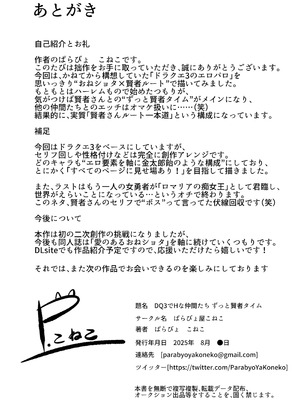 あとがき
自己紹介とお礼
作者のぱらびょ　こねこです。
このたびは拙作をお手に取っていただき、誠にありがとうございます。
今回は、かねてから構想していた「ドラクエ3のエロパロ」を
思いっきり“おねショタ×賢者ルート”で描いてみました。
もともとはハーレムもので始めたつもりが、
気がつけば賢者さんとの“ずっと賢者タイム”がメインになり、
他の仲間たちとのエッチはオマケ扱いに……（笑）
結果的に、実質「賢者さんルート一本道」という構成になっています。
補足
今回はドラクエ3をベースにしていますが、
セリフ回しや性格付けなどは完全に創作アレンジです。
どのキャラも“エロ要素を軸に金太郎飴のような構成”にしており、
とにかく「すべてのページに見せ場あり！」を目指して描きました。
また、ラストはもう一人の女勇者が「ロマリアの痴女王」として君臨し、
世界がえらいことになっている…というオチで終わります。
このネタ、賢者さんのセリフで“ボス”って言ってた伏線回収です（笑）
今後について
本作は初の二次創作の挑戦になりましたが、
今後も同人誌は「愛のあるおねショタ」を軸に続けていくつもりです。
DLsiteでも作品紹介予定ですので、応援いただけたら嬉しいです！
それでは、また次の作品でお会いできるのを楽しみにしております
P.こねこ
題名　DQ3でHな仲間たち ずっと賢者タイム
サークル名　ぱらびょ屋こねこ
著者　ぱらびょ　こねこ
発行年月日　2025年　8月　●日
連絡先　[parabyoyakoneko@gmail.com]
ツイッター[https://twitter.com/ParabyoYaKoneko]
本書を無断で複写複製、転載データ配布、
オークション出品等をすることを、固く禁じます。